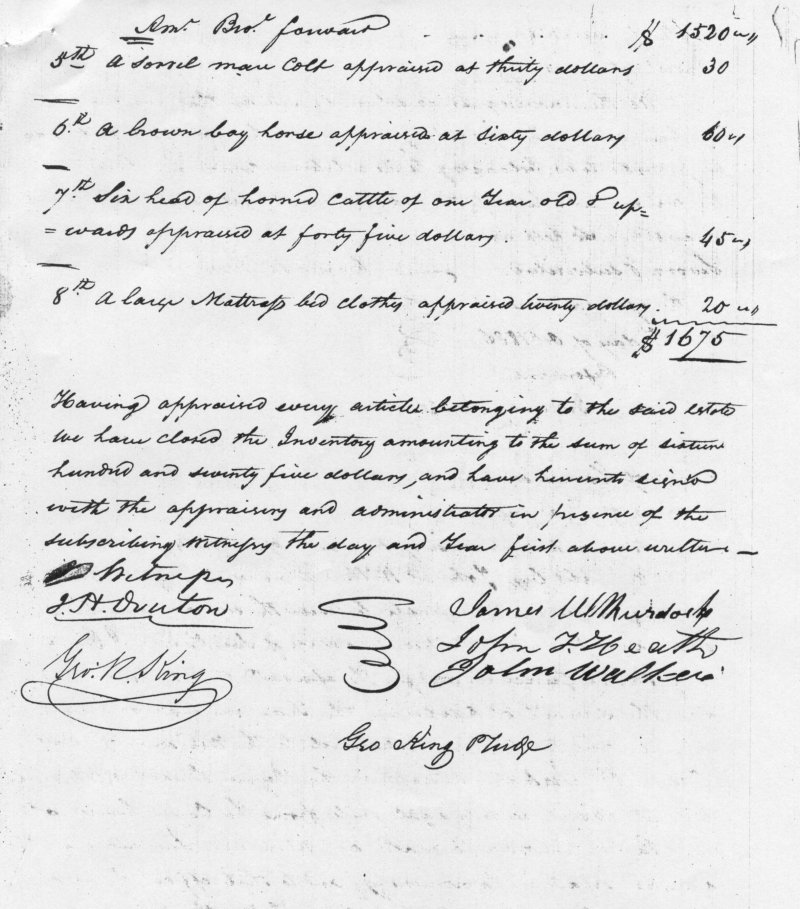 Amt. Brot. forward $ 1520 " "
5th A sorrel mare Colt appraised at thirty dollars 30
6th A brown bay horse appraised at sixty dollars 60 "
7th Six head of horned Cattle of one Year old & up=
=wards appraised at forty five dollars 45 "
8th A large Mattress bed clothes appraised twenty dollars. 20 " "
$ 1675
Having appraised every article belonging to the said estate
we have closed the Inventory amounting to the sum of sixteen
hundred and seventy five dollars, and have hereunto signed
with the appraisers and administrator in presence of the
subscribing Witnesses the day and Year first above written —
Witnesses
J. H. Overton
Geo. R. King
James W Murdock
John F. Heath
John Walker
Geo King P Judge